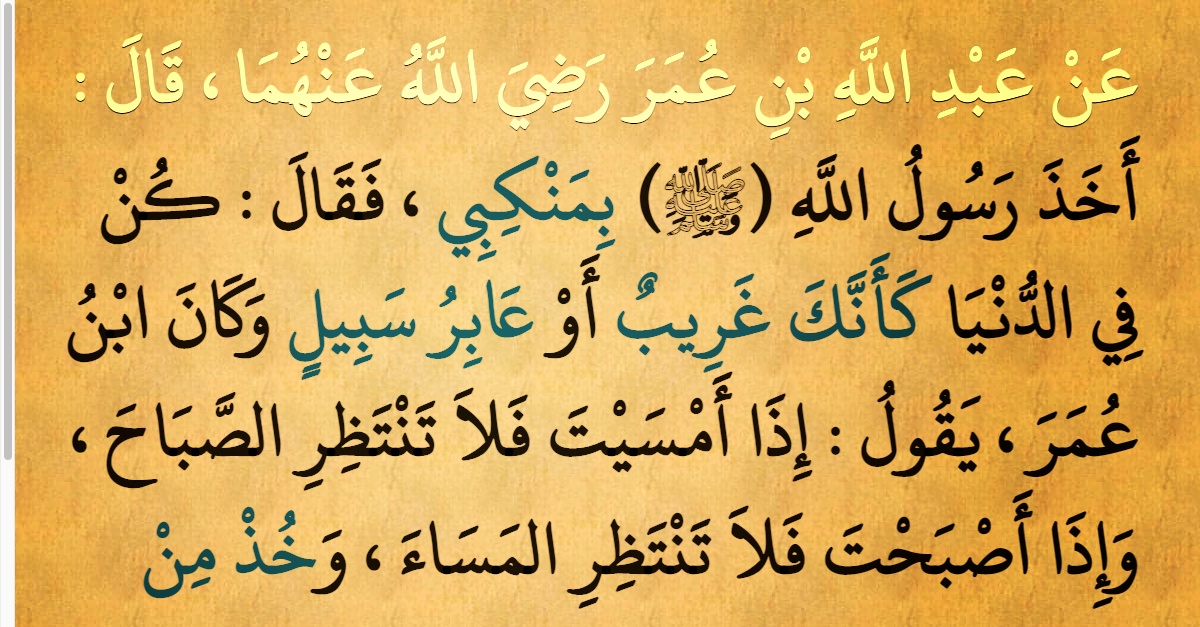 عَنْ عَبْدِ اللَّهِ بْنِ عُمَرَ رَضِيَ اللَّهُ عَنْهُمَا ، قَالَ :
أَخَذَ رَسُولُ اللَّهِ (ﷺ) بِمَنْكِبِي ، فَقَالَ : كُنْ
فِي الدُّنْيَا كَأَنَّكَ غَرِيبٌ أَوْ عَابِرُ سَبِيلٍ وَكَانَ ابْنُ
عُمَرَ ، يَقُولُ : إِذَا أَمْسَيْتَ فَلاَ تَنْتَظِرِ الصَّبَاحَ ،
وَإِذَا أَصْبَحْتَ فَلاَ تَنْتَظِرِ المَسَاءَ ، وَخُذْ مِنْ